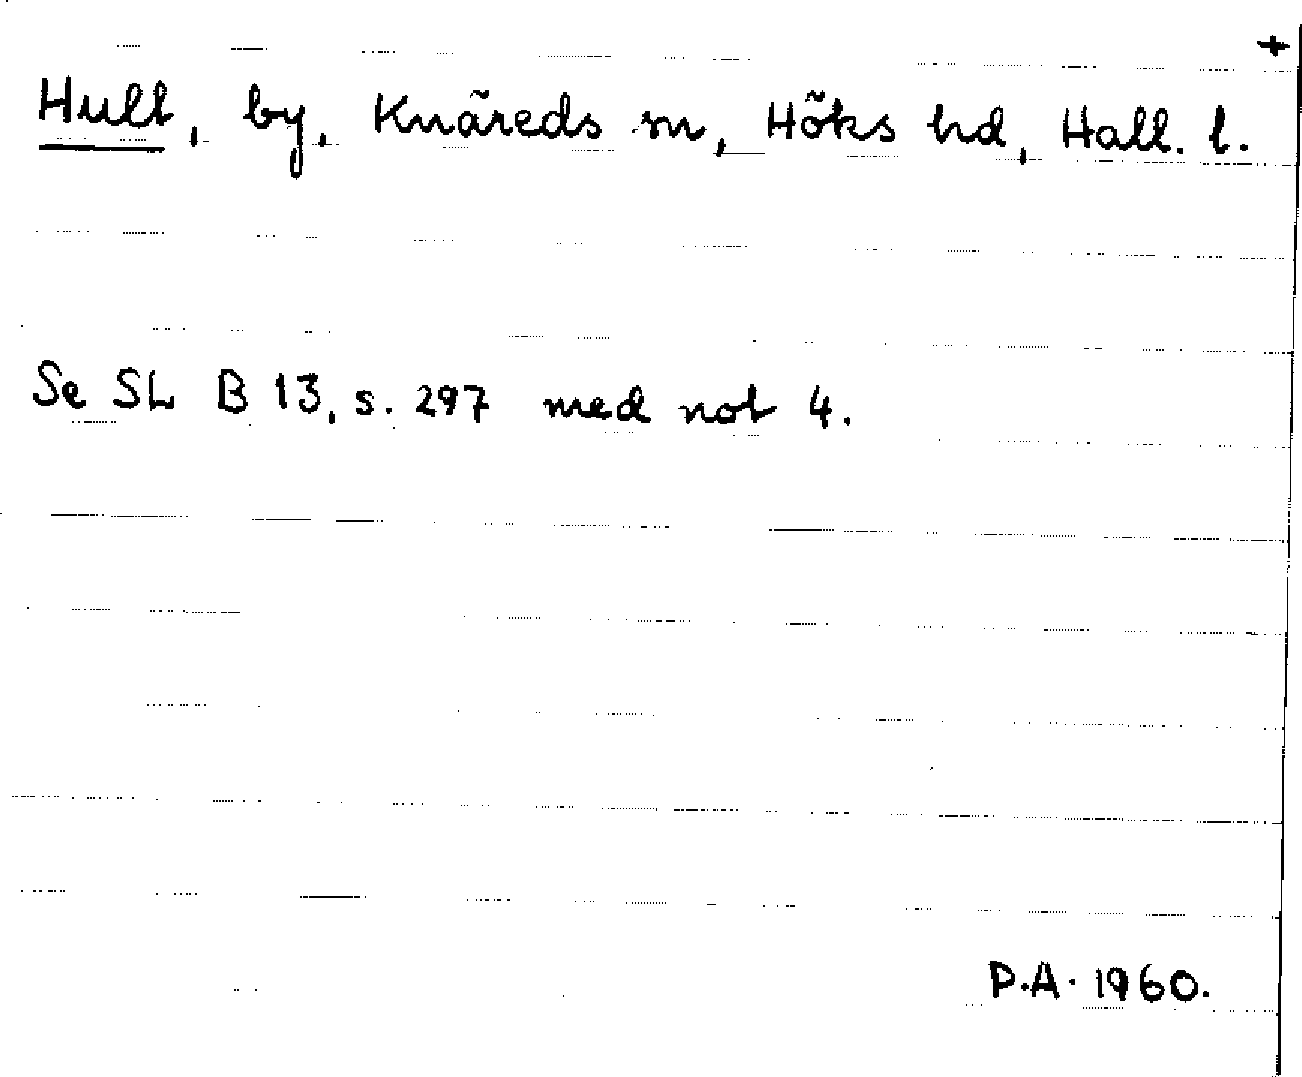 +
Hult, by, Knäreds sn, Höks hd, Hall. l.
Se SL B 13, s. 297 med not 4.
P.A. 1960.